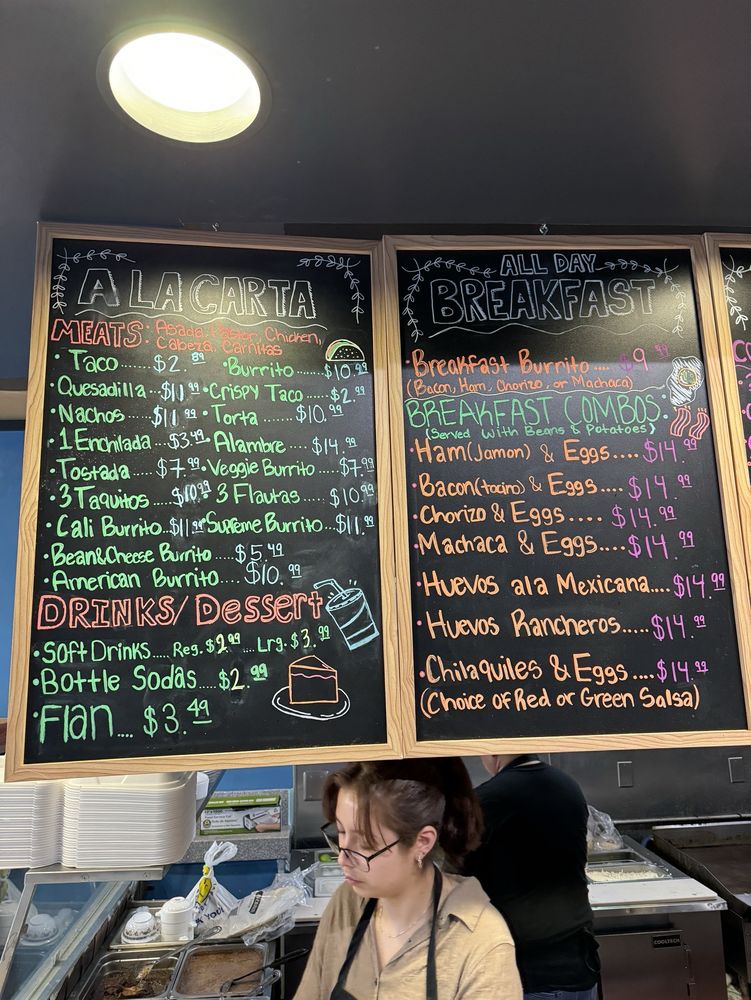 A LA CARTA
MEATS: Asada, Pastor, Chicken,
Cabeza, Carnitas
• Taco ...... $2.89
• Burrito ...... $10.99
• Quesadilla ... $11.99
• Crispy Taco ... $2.99
• Nachos ...... $11.99
• Torta ...... $10.99
• 1 Enchilada ... $3.49
• Alambre ...... $14.99
• Tostada .... $7.99
• Veggie Burrito .... $7.99
• 3 Taquitos .... $10.99
• 3 Flautas .... $10.99
• Cali Burrito ... $11.99
• Supreme Burrito ... $11.99
• Bean & Cheese Burrito .... $5.49
• American Burrito .... $10.99
DRINKS/Dessert
• Soft Drinks.... Reg. $2.99 .... Lrg. $3.99
• Bottle Sodas .... $2.99
• Flan .... $3.49
ALL DAY
BREAKFAST
• Breakfast Burrito .... $9.99
(Bacon, Ham, Chorizo, or Machaca)
BREAKFAST COMBOS
(Served With Beans & Potatoes)
• Ham (Jamon) & Eggs.... $14.99
• Bacon (tocino) & Eggs.... $14.99
• Chorizo & Eggs .... $14.99
• Machaca & Eggs.... $14.99
• Huevos ala Mexicana.... $14.99
• Huevos Rancheros..... $14.99
• Chilaquiles & Eggs .... $14.99
(Choice of Red or Green Salsa)
COOLTECH